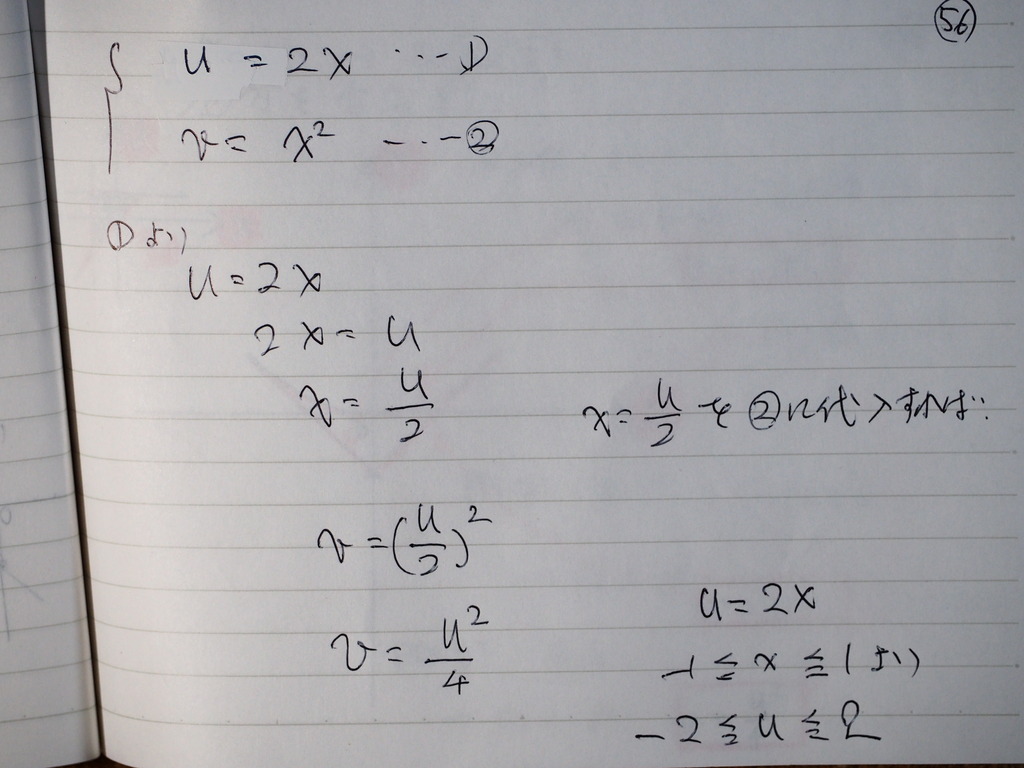 56
u = 2x ・・・①
v = x² ・・・②
①より
u = 2x
2x = u
x = u/2
x = u/2 を②に代入すれば:
v = (u/2)²
v = u²/4
u = 2x
-1 ≦ x ≦ 1 より
-2 ≦ u ≦ 2